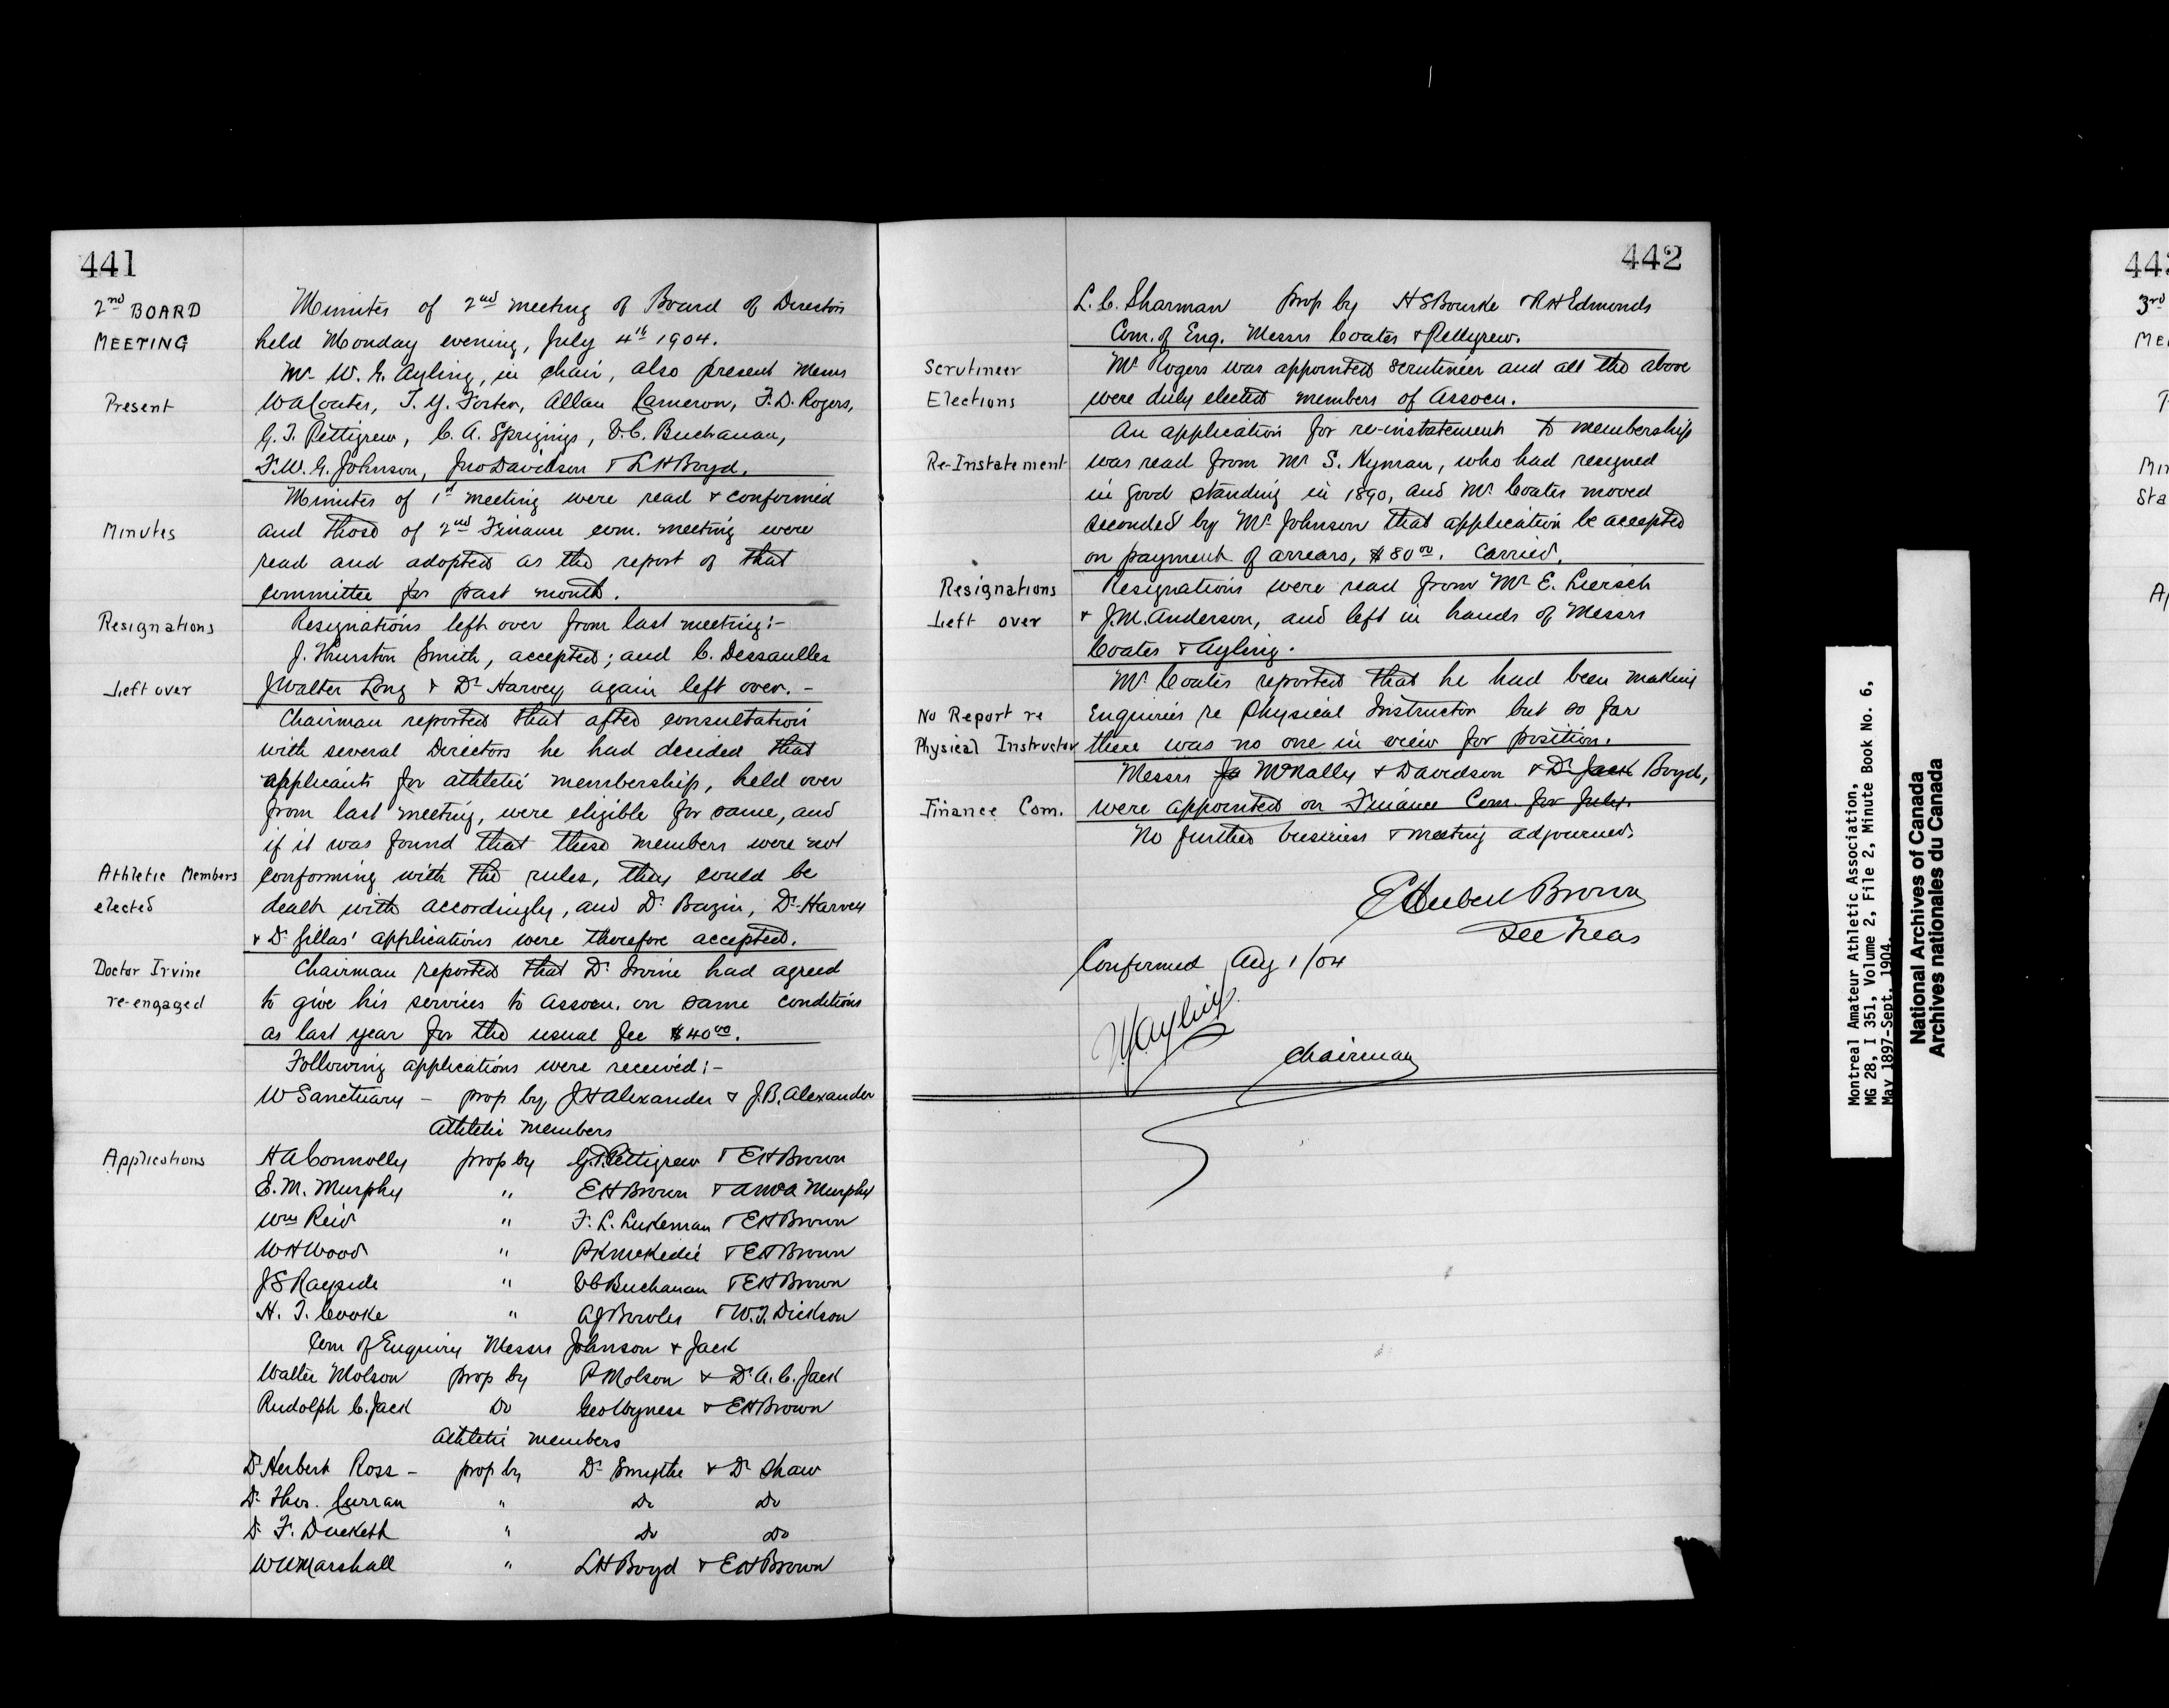 441
2nd BOARD
MEETING
Minutes of 2nd meeting of Board of Directors
held Monday evening, July 4th 1904.
Mr. W. G. Ayling, in chair, also present Messrs
Present
WACoates, T. Y. Foster, Allan Cameron, F. D. Rogers,
G. T. Pettigrew, C. A. Sprigings, V. C. Buchanan,
F. W. G. Johnson, Jno Davidson & L H Boyd.
Minutes of 1st meeting were read & confirmed
Minutes
and those of 2nd Finance com. meeting were
read and adopted as the report of that
committee for past month.
Resignations
Resignations left over from last meeting:-
J. Thurston Smith, accepted; and C. Dessaulles
Left over
J Walter Long & Dr Harvey again left over. -
Chairman reported that after consultation
with several Directors he had decided that
applicants for athletic membership, held over
from last meeting, were eligible for same, and
if it was found that these members were not
Athletic Members
conforming with the rules, they could be
elected
dealt with accordingly, and Dr Bazin, Dr Harvey
& Dr Gillas' applications were therefore accepted.
Doctor Irvine
Chairman reported that Dr Irvine had agreed
re-engaged
to give his services to assocn. on same conditions
as last year for the usual fee $40.00.
Following applications were received:-
W Sanctuary - prop by J H Alexander & J. B. Alexander
Athletic members
Applications
H A Connolly prop by G. T. Pettigrew & E H Brown
E. M. Murphy " E H Brown & Murphy
Wm Reid " F. L. Lukeman & E H Brown
W H Wood " P K McKedie & E H Brown
J S Rayside " V C Buchanan & E H Brown
H. T. Cooke " A J Bowles & W. T. Dickson
Com of Enquiry Messrs Johnson & Jack
Walter Molson prop by P Molson & Dr. A. C. Jack
Rudolph C. Jack Do Geo & E H Brown
Athletic members
Dr Herbert Ross - prop by Dr Smythe & Dr Shaw
Dr Thos. Curran " Do Do
Dr F. Duckett " Do Do
W Marshall " L H Boyd & E H Brown
442
L. C. Sharman prop by H S Bourke & R H Edmonds
Com. of Enq. Messrs Coates & Pettigrew.
Scrutineer
Mr Rogers was appointed scrutineer and all the above
Elections
were duly elected members of Assocn.
An application for re-instatement to membership
Re-Instatement
was read from Mr S. Nyman, who had resigned
in good standing in 1890, and Mr. Coates moved
seconded by Mr Johnson that application be accepted
on payment of arrears, $80.00. Carried.
Resignations
Resignations were read from Mr E. Liersch
Left over
& J. M. Anderson, and left in hands of Messrs
Coates & Ayling.
Mr Coates reported that he had been making
No Report re
Enquiries re Physical Instructor but so far
Physical Instructor
there was no one in view for position.
Messrs Ja McNally & Davidson & Dr Jack Boyd,
Finance Com.
were appointed on Finance Com. for July.
No further business & meeting adjourned.
E Herbert Brown
Sec Treas
Confirmed Aug 1/04
W G Ayling
Chairman
Montreal Amateur Athletic Association,
MG 28, I 351, Volume 2, File 2, Minute Book No. 6,
May 1897-Sept. 1904.
National Archives of Canada
Archives nationales du Canada
3rd